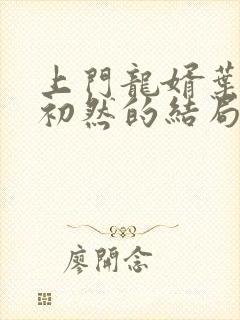 上門龍婿葉
初然的結局
廖開念